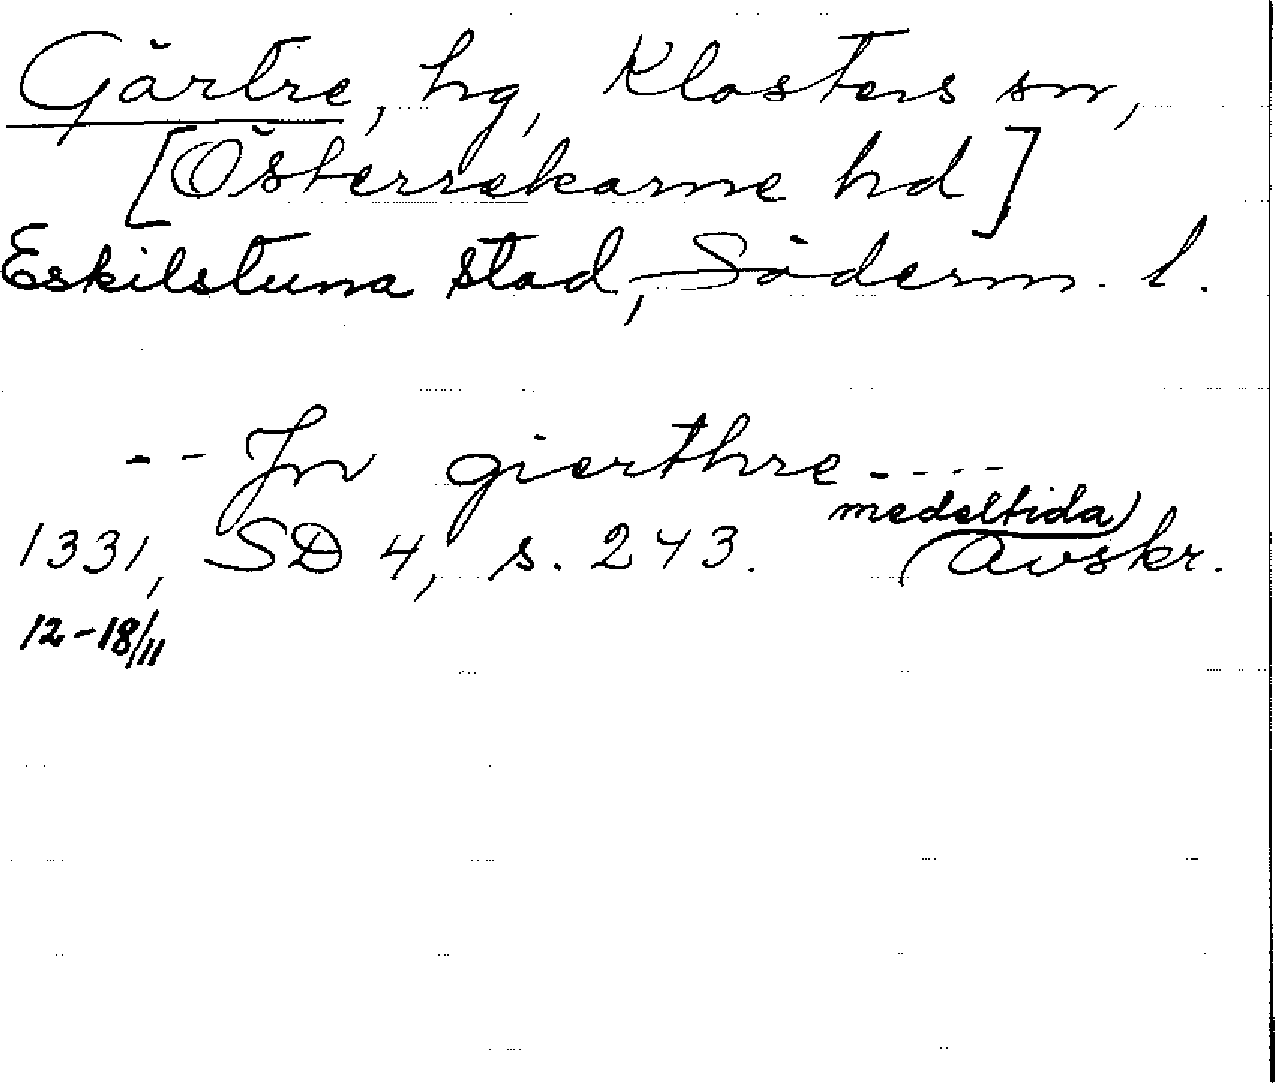 Gärtre, hg, Klosters sn,
[Österrekarne hd]
Eskilstuna stad, Söderm. l.
-- Jn gierthre ----
1331, SD 4, s. 243. (medeltida) avskr.
12-18/11